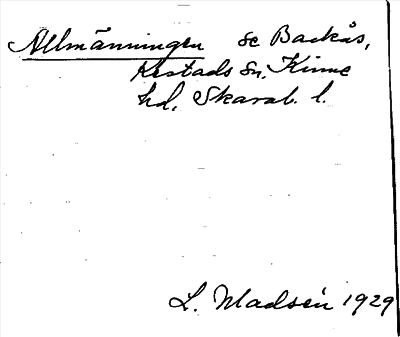 Allmänningen se Backås,
Kestads sn. Kinne
hd. Skarab. l.
L. Madsén 1929